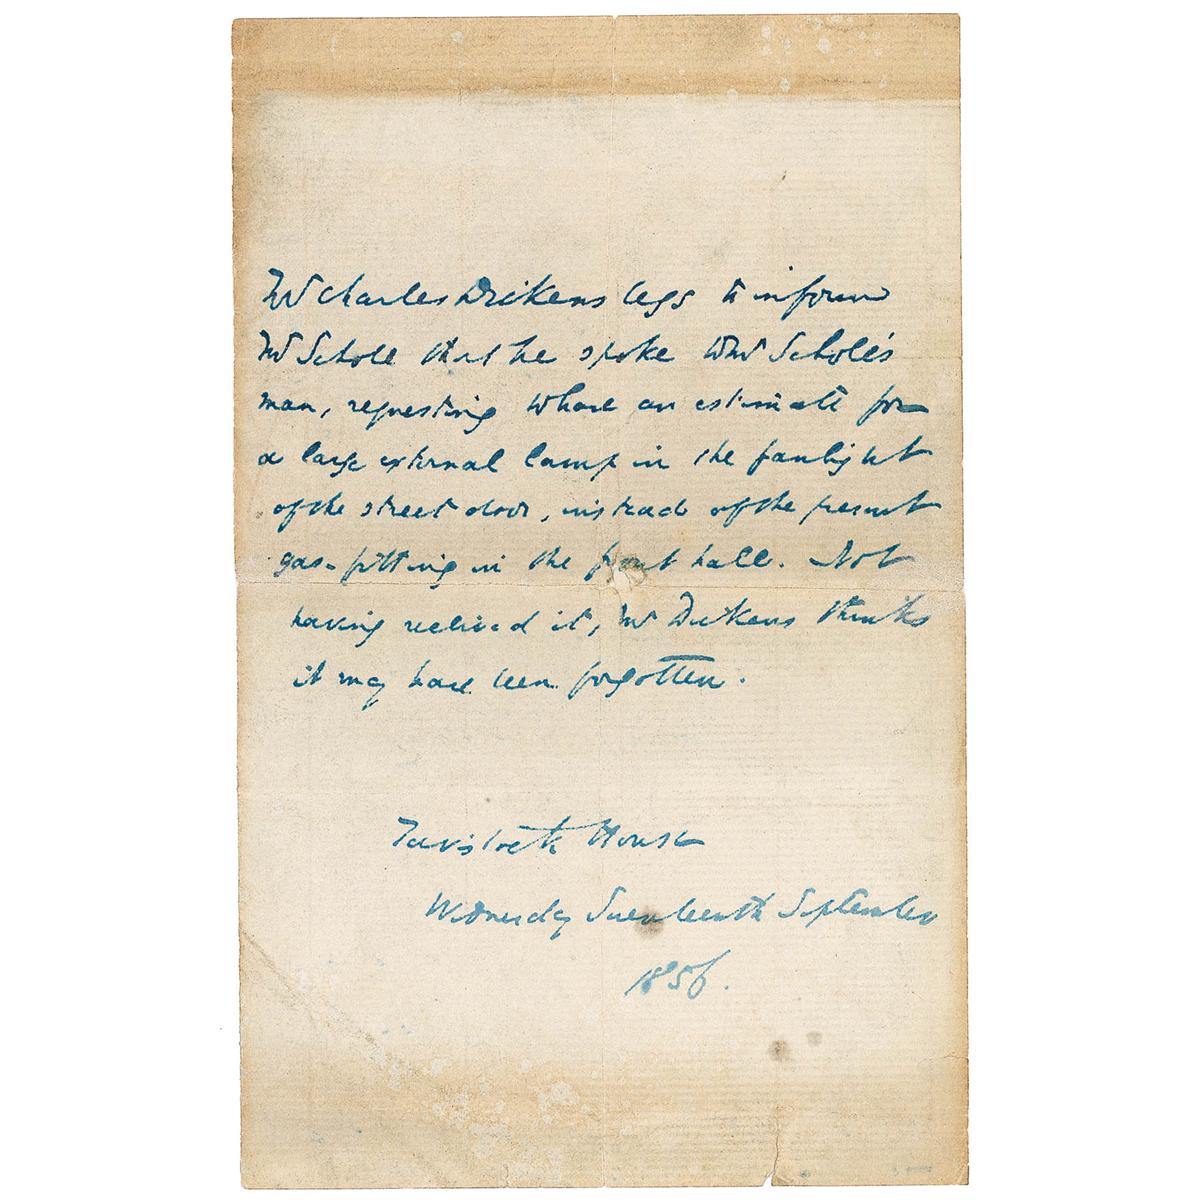 Mr Charles Dickens begs to inform
Mr Schole that he spoke to Mr Schole's
man, requesting to have an estimate for
a large external lamp in the fanlight
of the street door, instead of the present
gas-fitting in the front hall. Not
having received it, Mr Dickens thinks
it may have been forgotten.
Tavistock House
Wednesday Seventeenth September
1856.